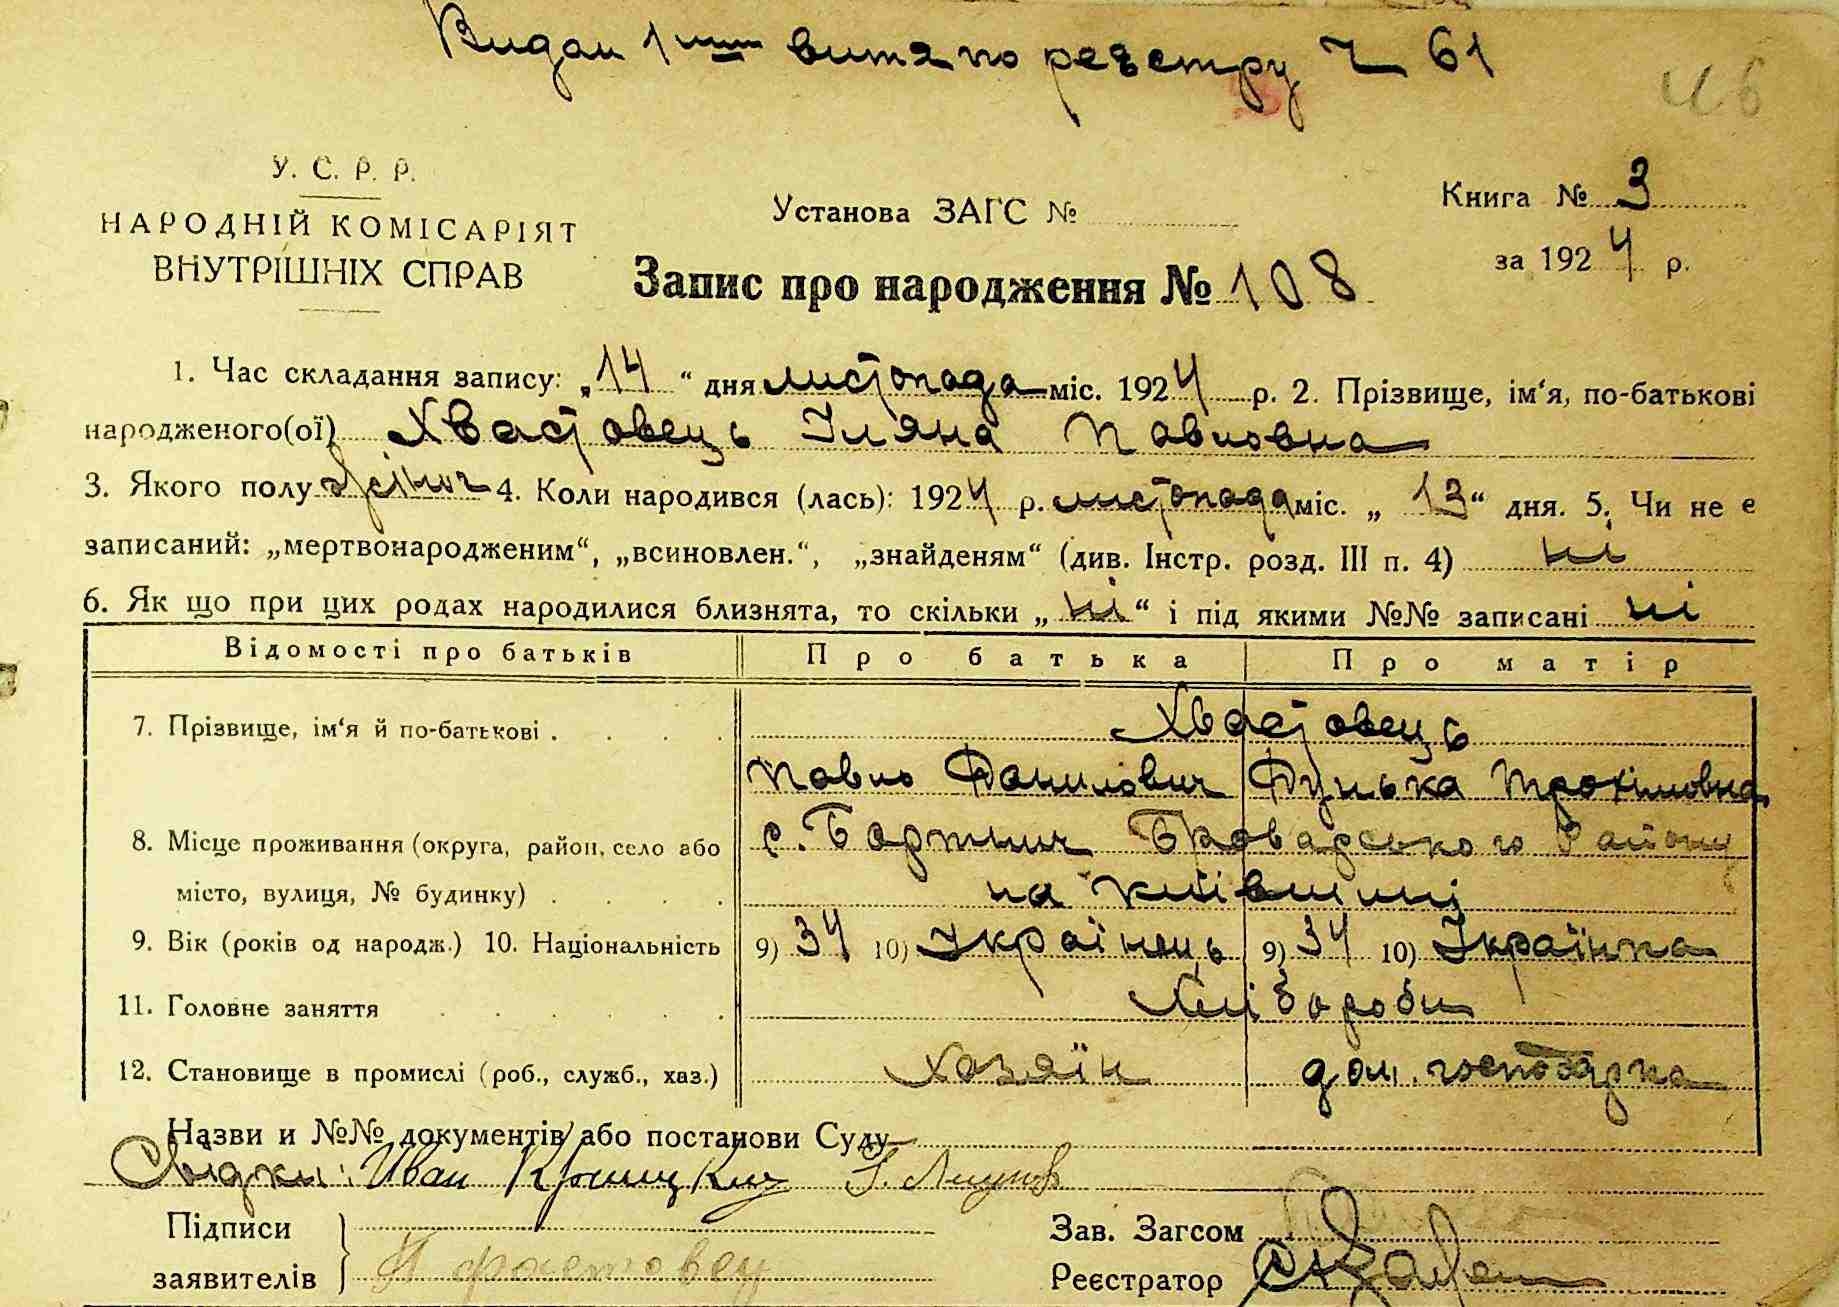 Видан 1 витяг по реєстру Ч 61
46
У. С. Р. Р.
НАРОДНІЙ КОМІСАРІЯТ
ВНУТРІШНІХ СПРАВ
Установа ЗАГС №
Книга № 3
за 1924 р.
Запис про народження № 108
1. Час складання запису: „14“ дня листопада міс. 1924 р. 2. Прізвище, ім‘я, по-батькові
народженого(ої) Хвастовець Уляна Павловна
3. Якого полу жіноч 4. Коли народився (лась): 1924 р. листопада міс. „13“ дня. 5. Чи не є
записаний: „мертвонародженим“, „всиновлен.“, „знайденям“ (див. Інстр. розд. III п. 4) ні
6. Як що при цих родах народилися близнята, то скільки „ні“ і під якими №№ записані ні
Відомості про батьків Про батька Про матір
7. Прізвище, ім‘я й по-батькові . . . . Хвастовець
Павло Данилович Дунька Трохимовна
8. Місце проживання (округа, район, село або с. Бортнич Броварського Району
місто, вулиця, № будинку) . . . . на Київщині
9. Вік (років од народж.) 10. Національність 9) 34 10) Українець 9) 34 10) Українка
11. Головне заняття . . . . . Хлібороби
12. Становище в промислі (роб., служб., хаз.) Хазяїн дом. господарка
Назви и №№ документів або постанови Суду
Свідки: Иван
Підписи
заявителів П Фастовец
Зав. Загсом
Реєстратор